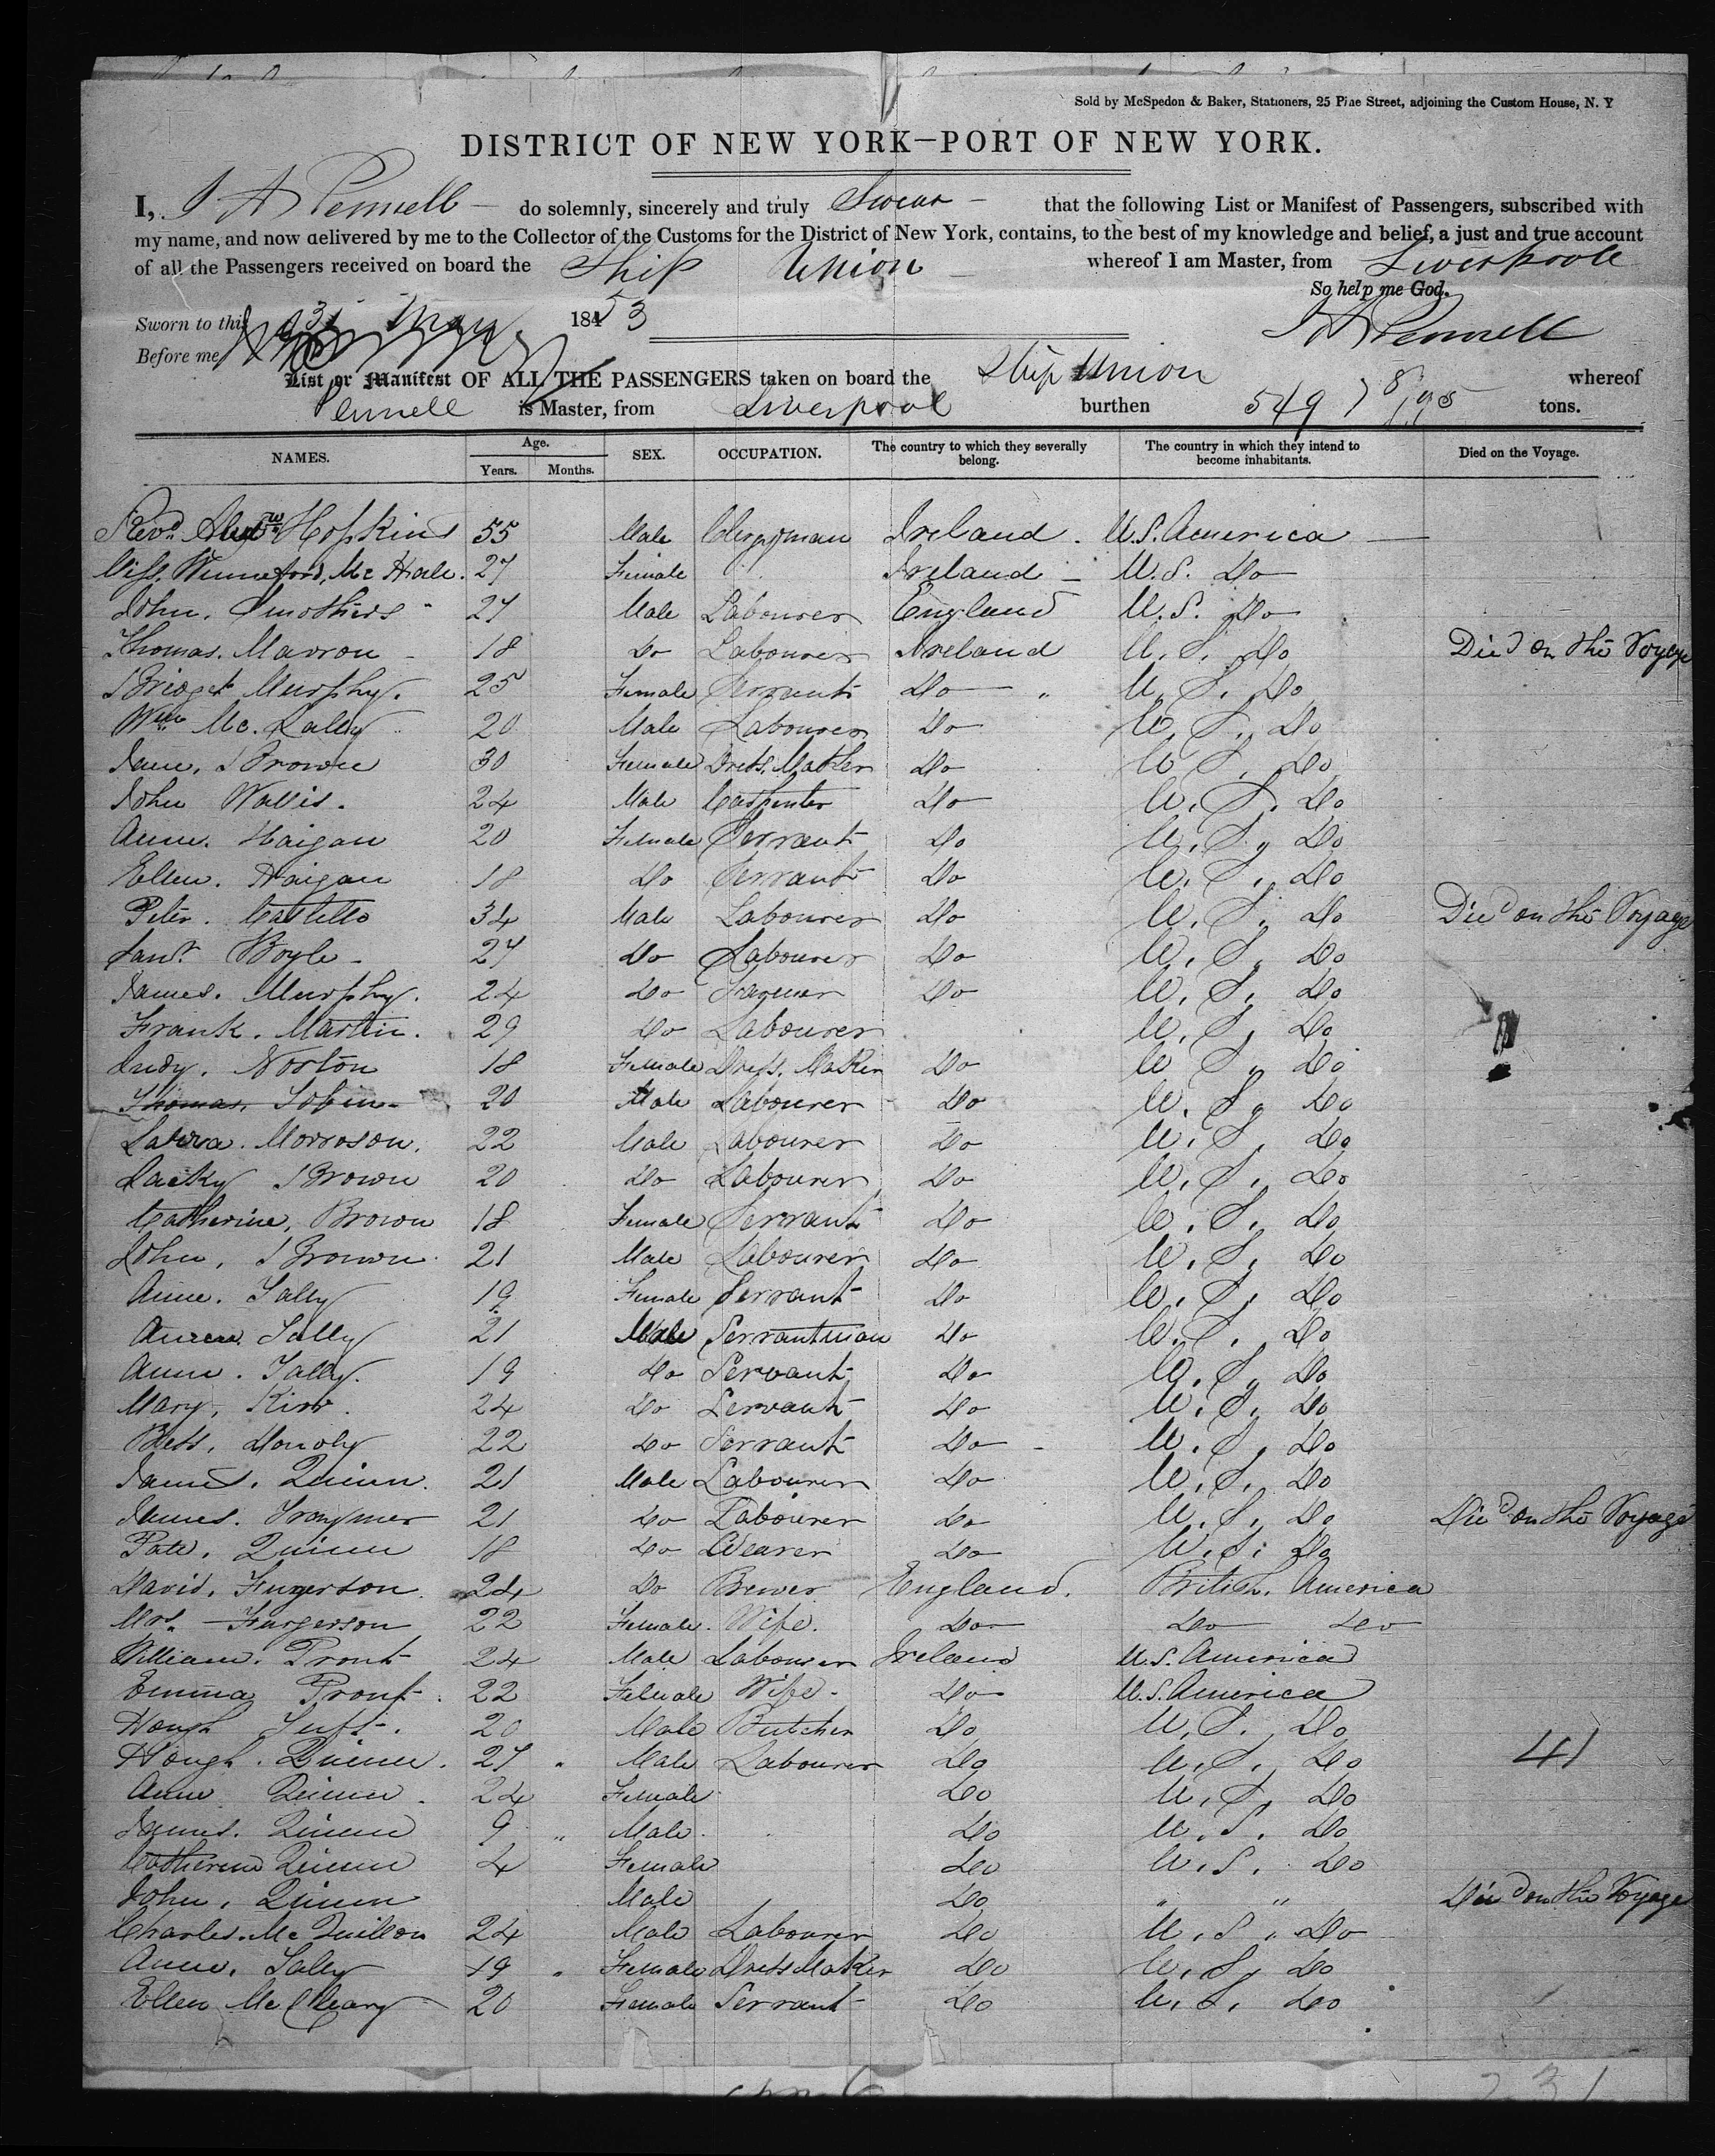 Sold by McSpedon & Baker, Stationers, 25 Pine Street, adjoining the Custom House, N. Y
DISTRICT OF NEW YORK—PORT OF NEW YORK.
I, J A Pennell — do solemnly, sincerely and truly Swear — that the following List or Manifest of Passengers, subscribed with
my name, and now delivered by me to the Collector of the Customs for the District of New York, contains, to the best of my knowledge and belief, a just and true account
of all the Passengers received on board the Ship Union whereof I am Master, from Liverpool
So help me God.
Sworn to this 31 May 1853
J A Pennell
Before me
List or Manifest OF ALL THE PASSENGERS taken on board the Ship Union whereof
Pennell is Master, from Liverpool burthen 549 tons.
NAMES. Age. Years. Months. SEX. OCCUPATION. The country to which they severally belong. The country in which they intend to become inhabitants. Died on the Voyage.
Revd. Alexw Hopkins 55 Male Clergyman Ireland. U.S. America
Miss. Winneford, Mc Hale. 27 Female Ireland U.S. Do
John. Smothers 27 Male Labourer England U.S. Do
Thomas. Marron 18 Do Labourer Ireland U.S. Do Died on the Voyage
Bridget Murphy. 25 Female Servant Do U.S. Do
Wm Mc. Lally 20 Male Labourer Do U.S. Do
Jane. Brown 30 Female Dress. Maker Do U.S. Do
John Wallis. 24 Male Carpenter Do U.S. Do
Anne. Haigan 20 Female Servant Do U.S. Do
Ellen. Haigan 18 Do Servant Do U.S. Do
Peter. Castello 34 Male Labourer Do U.S. Do Died on the Voyage
Boyle 27 Do Labourer Do U.S. Do
James. Murphy. 24 Do Farmer Do U.S. Do
Frank. Martin. 29 Do Labourer U.S. Do
Judy. Norton 18 Female Dress. Maker Do U.S. Do
Thomas. Tobin 20 Male Labourer Do U.S. Do
Morroson. 22 Male Labourer Do U.S. Do
Lacky Brown 20 Do Labourer Do U.S. Do
Catherine. Brown 18 Female Servant Do U.S. Do
John. Brown 21 Male Labourer Do U.S. Do
Anne. Tally 19 Female Servant Do U.S. Do
Tally 21 Male Servantman Do U.S. Do
Anne. Tally. 19 Do Servant Do U.S. Do
Mary. Kirr. 24 Do Servant Do U.S. Do
Bess. Donoly 22 Do Servant Do U.S. Do
James. Quinn. 21 Male Labourer Do U.S. Do
James. Traymer 21 Do Labourer Do U.S. Do Died on the Voyage
Pate. Quinn 18 Do Weaver Do U.S. Do
David. Furgerson. 24 Do Brewer England. British. America
Mrs. Furgerson 22 Female. Wife. Do Do Do
William. Pront 24 Male Labourer Ireland U.S. America
Emma Pront. 22 Female Wife. Do U.S. America
Hough Tuft. 20 Male Butcher Do U.S. Do
Hough. Quinn. 27 Male Labourer Do U.S. Do 41
Anne Quinn. 24 Female Do U.S. Do
James. Quinn 9 " Male. Do U.S. Do
Catherine Quinn 4 Female Do U.S. Do
John. Quinn Male Do " " Died on the Voyage
Charles. Mc Quillon 24 Male Labourer Do U.S. Do
Anne. Tally 19 " Female Dress Maker Do U.S. Do
Ellen Mc Cleary 20 Female Servant Do U.S. Do
231